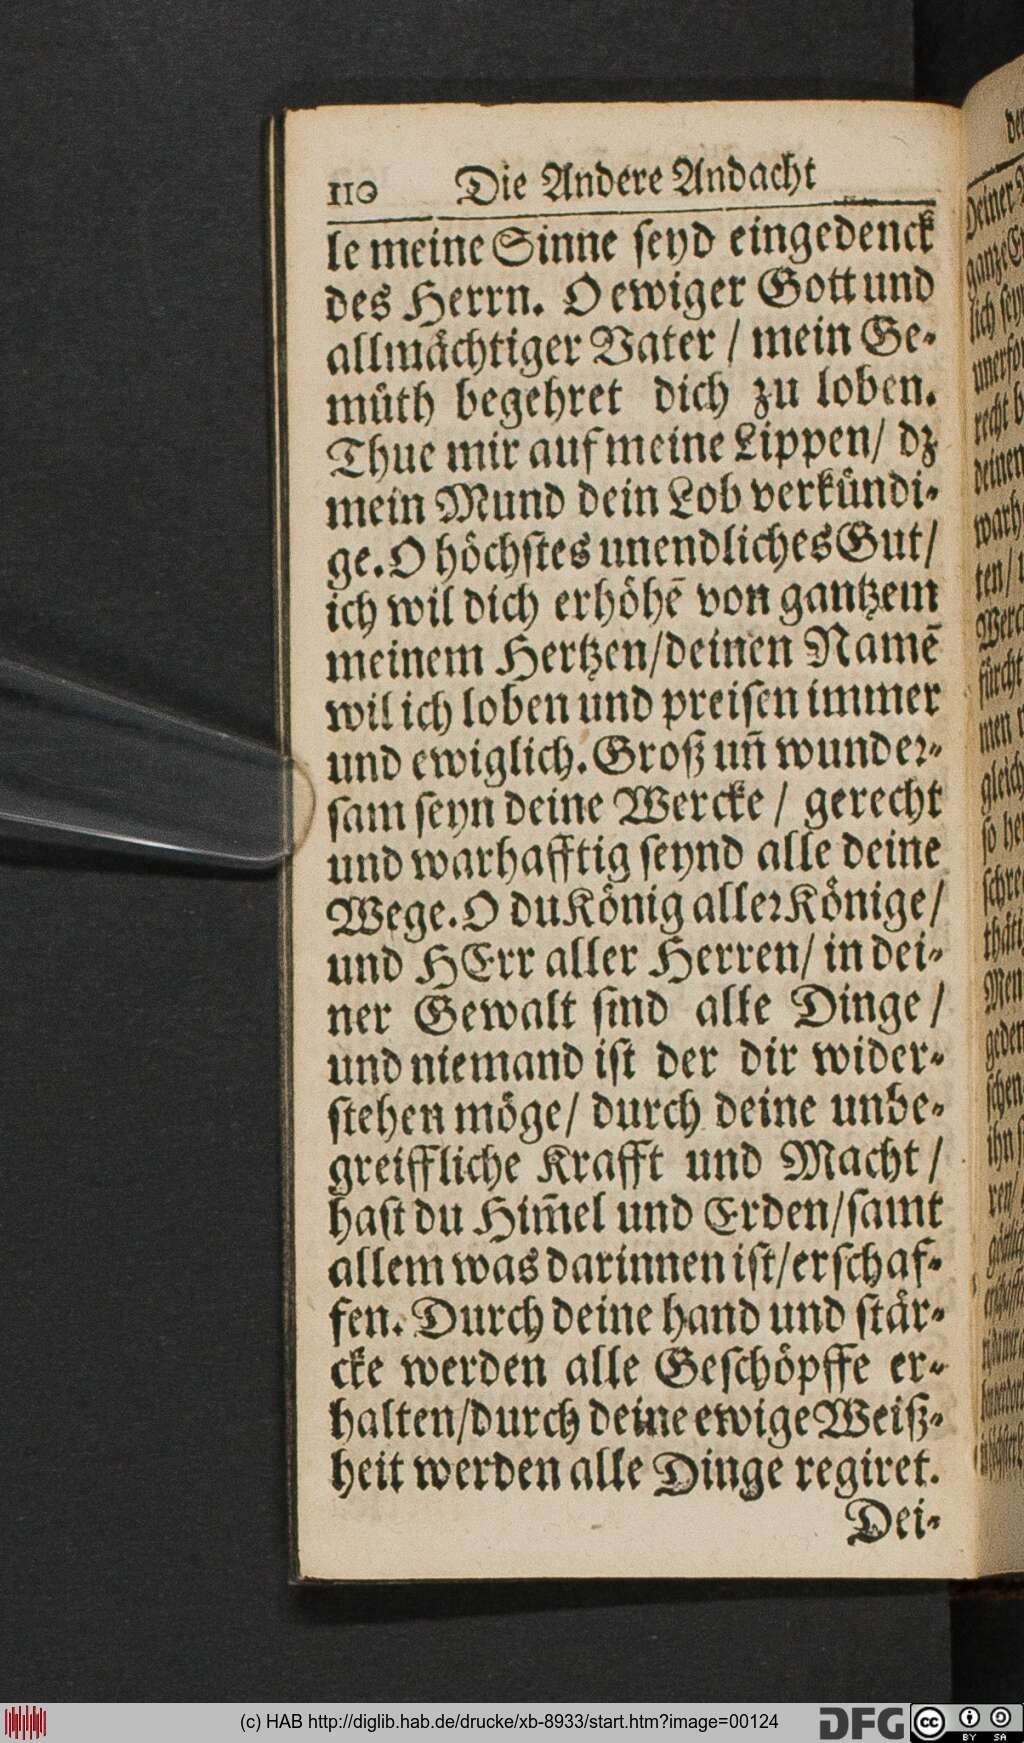 110 Die Andere Andacht
le meine Sinne ſeyd eingedenck
des Herrn. O ewiger Gott und
allmaͤchtiger Vater / mein Ge-
muͤth begehret dich zu loben.
Thue mir auf meine Lippen / dz
mein Mund dein Lob verkuͤndi-
ge. O hoͤchſtes unendliches Gut /
ich wil dich erhoͤhē von gantzem
meinem Hertzen / deinen Namē
wil ich loben und preiſen immer
und ewiglich. Groß uñ wunder-
ſam ſeyn deine Wercke / gerecht
und warhafftig ſeynd alle deine
Wege. O du Koͤnig aller Koͤnige /
und HErr aller Herren / in dei-
ner Gewalt ſind alle Dinge /
und niemand iſt der dir wider-
ſtehen moͤge / durch deine unbe-
greiffliche Krafft und Macht /
haſt du Him̃el und Erden / ſamt
allem was darinnen iſt / erſchaf-
fen. Durch deine hand und ſtaͤr-
cke werden alle Geſchoͤpffe er-
halten / durch deine ewige Weiß-
heit werden alle Dinge regiret.
Dei-
(c) HAB http://diglib.hab.de/drucke/xb-8933/start.htm?image=00124
DFG
cc BY SA